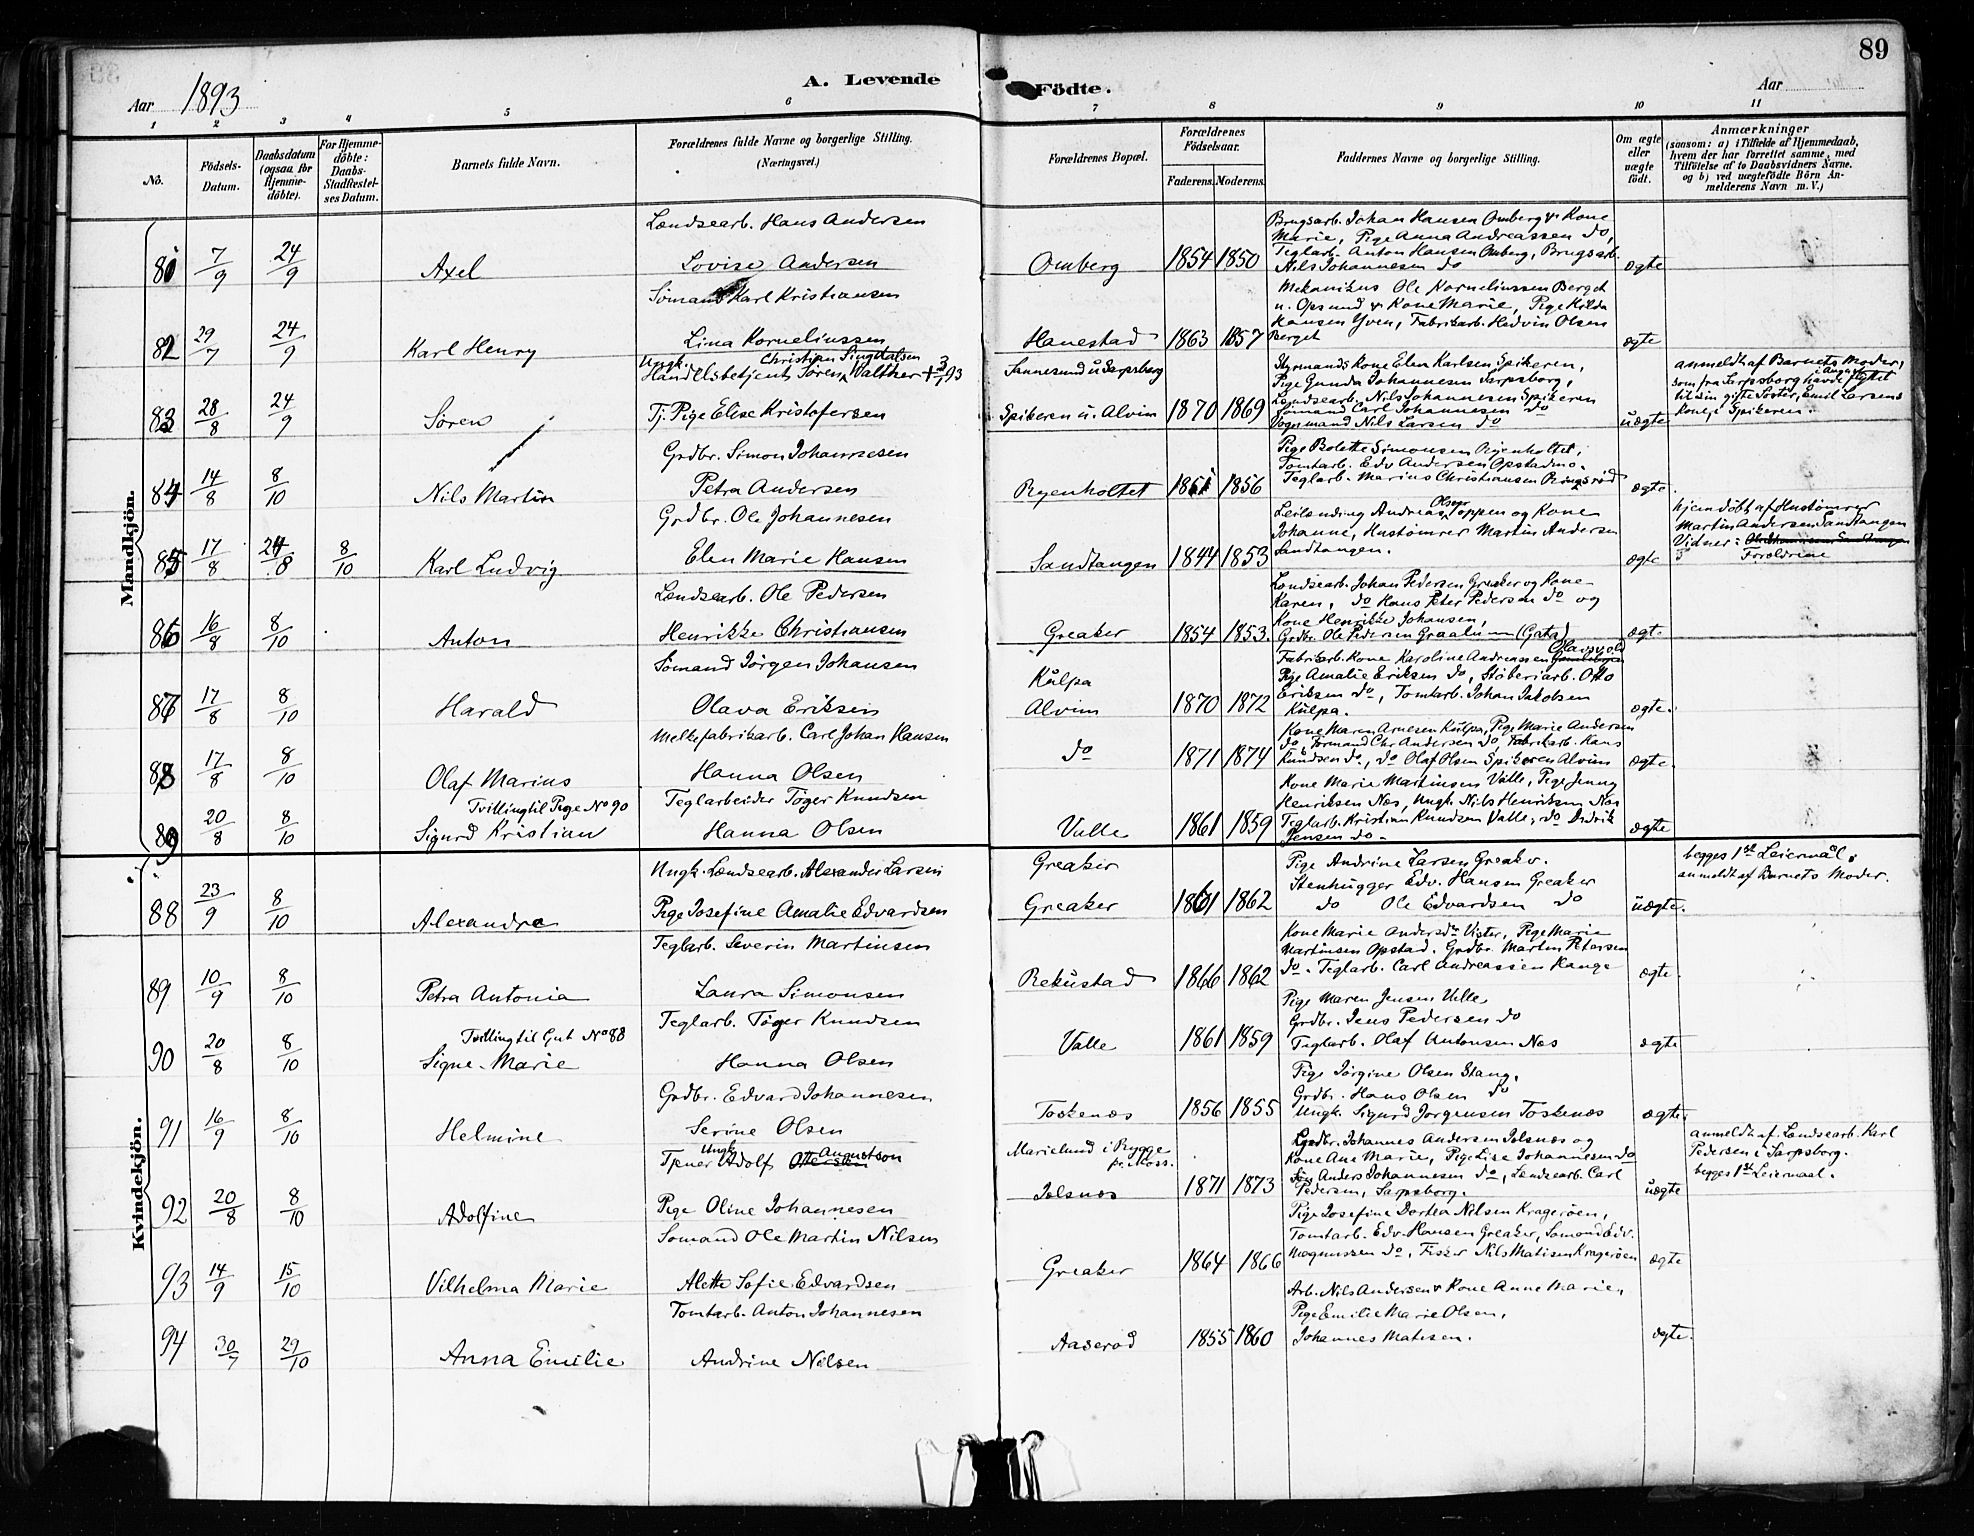 89
Aar 1893
A. Levende
Födte.
Aar
1 2 3 4 5 6 7 8 9 10 11
No.
Födsels-Datum.
Daabsdatum (ogsaa for Hjemme-döbte).
For Hjemme-döbte: Daabs-Stadfæstel-ses Datum.
Barnets fulde Navn.
Forældrenes fulde Navne og borgerlige Stilling.
(Næringsvei.)
Forældrenes Bopæl.
Forældrenes Födselsaar.
Faderens. Moderens.
Faddernes Navne og borgerlige Stilling.
Om ægte eller uægte födt.
Anmærkninger
(saasom: a) i Tilfælde af Hjemmedaab,
hvem der har forrettet samme, med
Tilföielse af to Daabsvidners Navne.
og b) ved uægtefödte Börn An-
melderens Navn m. V.)
Mandkjön.
Lændsearb. Hans Andersen
81 7/9 24/9 Axel
Lovise Andersen
Omberg 1854 1850
Brugsarb. Johan Hansen Omberg & Kone
Marie, Pige Anna Andreassen do,
Teglarb. Anton Hansen Omberg, Brugsarb.
Nils Johannesen do
ægte
Sömand Karl Kristiansen
82 29/7 24/9 Karl Henry
Lina Korneliussen
Hanestad 1863 1857
Mekanikus Ole Korneliussen Berget
u. Opsund & Kone Marie, Pige Hilda
Hansen Yven, Fabrikarb. Hedvin Olsen
Berget
ægte
Ungk. Christian Singdalsen
Handelsbetjent Sören Walther
83 28/8 24/9 Sören
Tj. Pige Elise Kristofersen
Sannesund u. Sarpsborg
Spikeren u. Alvim 1870 1869
Styrmands Kone Elen Karlsen, Spikeren,
Pige Gunda Johannesen Sarpsborg,
Lændsearb. Nils Johannesen Spikeren
Sömand Carl Johannesen do
Vognmand Nils Larsen do
uægte
anmeldt af Barnets Moder,
som fra Sarpsborg havde flyttet
til sin gifte Söster, Emil Larsens
Kone i Spikeren.
Grdbr. Simon Johannesen
84 14/8 8/10 Nils Martin
Petra Andersen
Ryenholtet 1851 1856
Pige Bolette Simonsen Ryenholtet,
Tomtarb. Edv. Andersen Opstadmo.
Teglarb. Marius Christiansen Ringsröd
ægte.
Grdbr. Ole Johannesen
85 17/8 24/8 8/10 Karl Ludvig
Elen Marie Hansen
Sandtangen 1844 1853
Leilænding Andreas Olsen oppen og Kone
Johanne, Hustömrer Martin Andersen
Sandtangen.
ægte
hjemdöbt af Hustömrer
Martin Andersen Sandtangen
Vidner:
Forældrene
Lændsearb. Ole Pedersen
86 16/8 8/10 Anton
Henrikke Christiansen
Greaker 1854 1853.
Lændsearb. Johan Pedersen Greaker og Kone
Karen, do Hans Peter Pedersen do og
Kone Henrikke Johansen,
Grdbr. Ole Pedersen Graalum (Gata)
ægt.
Sömand Jörgen Johansen
87 17/8 8/10 Harald
Olava Eriksen
Kulpa
Alvim 1870 1872
Fabrikarb. Kone Karoline Andreassen Olavsvold
Pige Amalie Eriksen do, Stöberiarb. Otto
Eriksen do, Tomtarb. Johan Jakobsen
Kulpa.
ægte.
Melkefabrikarb. Carl Johan Hansen
88 17/8 8/10 Olaf Marius
Hanna Olsen
do 1871 1874
Kone Maren Arnesen Kulpa, Pige Marie Andersen
do Formand Chr. Andersen do, Fabrikarb. Hans
Knudsen do, do Olaf Olsen Spikeren Alvim
ægte.
Tvilling til Pige No 90
Teglarbeider Töger Knudsen
89 20/8 8/10 Sigurd Kristian
Hanna Olsen
Valle 1861 1859
Kone Marie Martinsen Valle, Pige Jenny
Henriksen Næs, Ungk. Nils Henriksen Næs
Teglarb. Kristian Knudsen Valle, do Didrik
Jensen do
ægte
Kvindekjön.
Ungk. Lændsearb. Alexander Larsen
88 23/9 8/10 Alexandra
Pige Josefine Amalie Edvardsen
Greaker
Greaker 1861 1862
Pige Andrine Larsen Greaker.
Stenhugger Edv. Hansen Greaker
do Ole Edvardsen do
uægte.
begges 1ste Leiermål.
anmeldt af Barnets Moder.
Teglarb. Severin Martinsen
89 10/9 8/10 Petra Antonia
Laura Simonsen
Rekustad 1866 1862
Kone Marie Andersdr Vister, Pige Marie
Martinsen Opstad. Grdbr. Martin Petersen
do. Teglarb. Carl Andreassen Hauge
ægte.
Teglarb. Töger Knudsen
Tvilling til Gut No 88
90 20/8 8/10 Signe Marie
Hanna Olsen
Valle 1861 1859
Pige Maren Jensen Valle
Grdbr. Jens Pedersen do
Teglarb. Olaf Antonsen Næs
ægte
Grdbr. Edvard Johannesen
91 16/9 8/10 Helmine
Serine Olsen
Toskenæs 1856 1855
Pige Jörgine Olsen Stang.
Grdbr. Hans Olsen do
Ungk. Sigurd Jörgensen Toskenæs
ægte.
Ungk.
Tjener Adolf Ottersen Augustson
92 20/8 8/10 Adolfine
Pige Oline Johannesen
Marielund i Rygge
pr. Moss.
Jelsnæs 1871 1873
Grdbr. Johannes Andersen Jelsnæs og
Kone Ane Marie, Pige Lise Johannesen do
Sön Anders Johannesen do, Lændsearb. Carl
Pedersen, Sarpsborg.
uægte
anmeldt af Lændsearb. Karl
Pedersen i Sarpsborg.
begges 1ste Leiermaal.
Sömand Ole Martin Nilsen
93 14/9 15/10 Vilhelma Marie
Alette Sofie Edvardsen
Greaker 1864 1866
Pige Josefine Dortea Nilsen Krageröen,
Tomtarb. Edv. Hansen Greaker, Sömand Edv.
Magnussen do, Fisker Nils Matisen Krageröen
ægte
Tomtarb. Anton Johannesen
94 30/7 29/10 Anna Emilie
Andrine Nilsen
Aaseröd 1855 1860
Arb. Nils Andersen & Kone Anne Marie,
Pige Emilie Marie Olsen,
Johannes Matisen.
ægte.